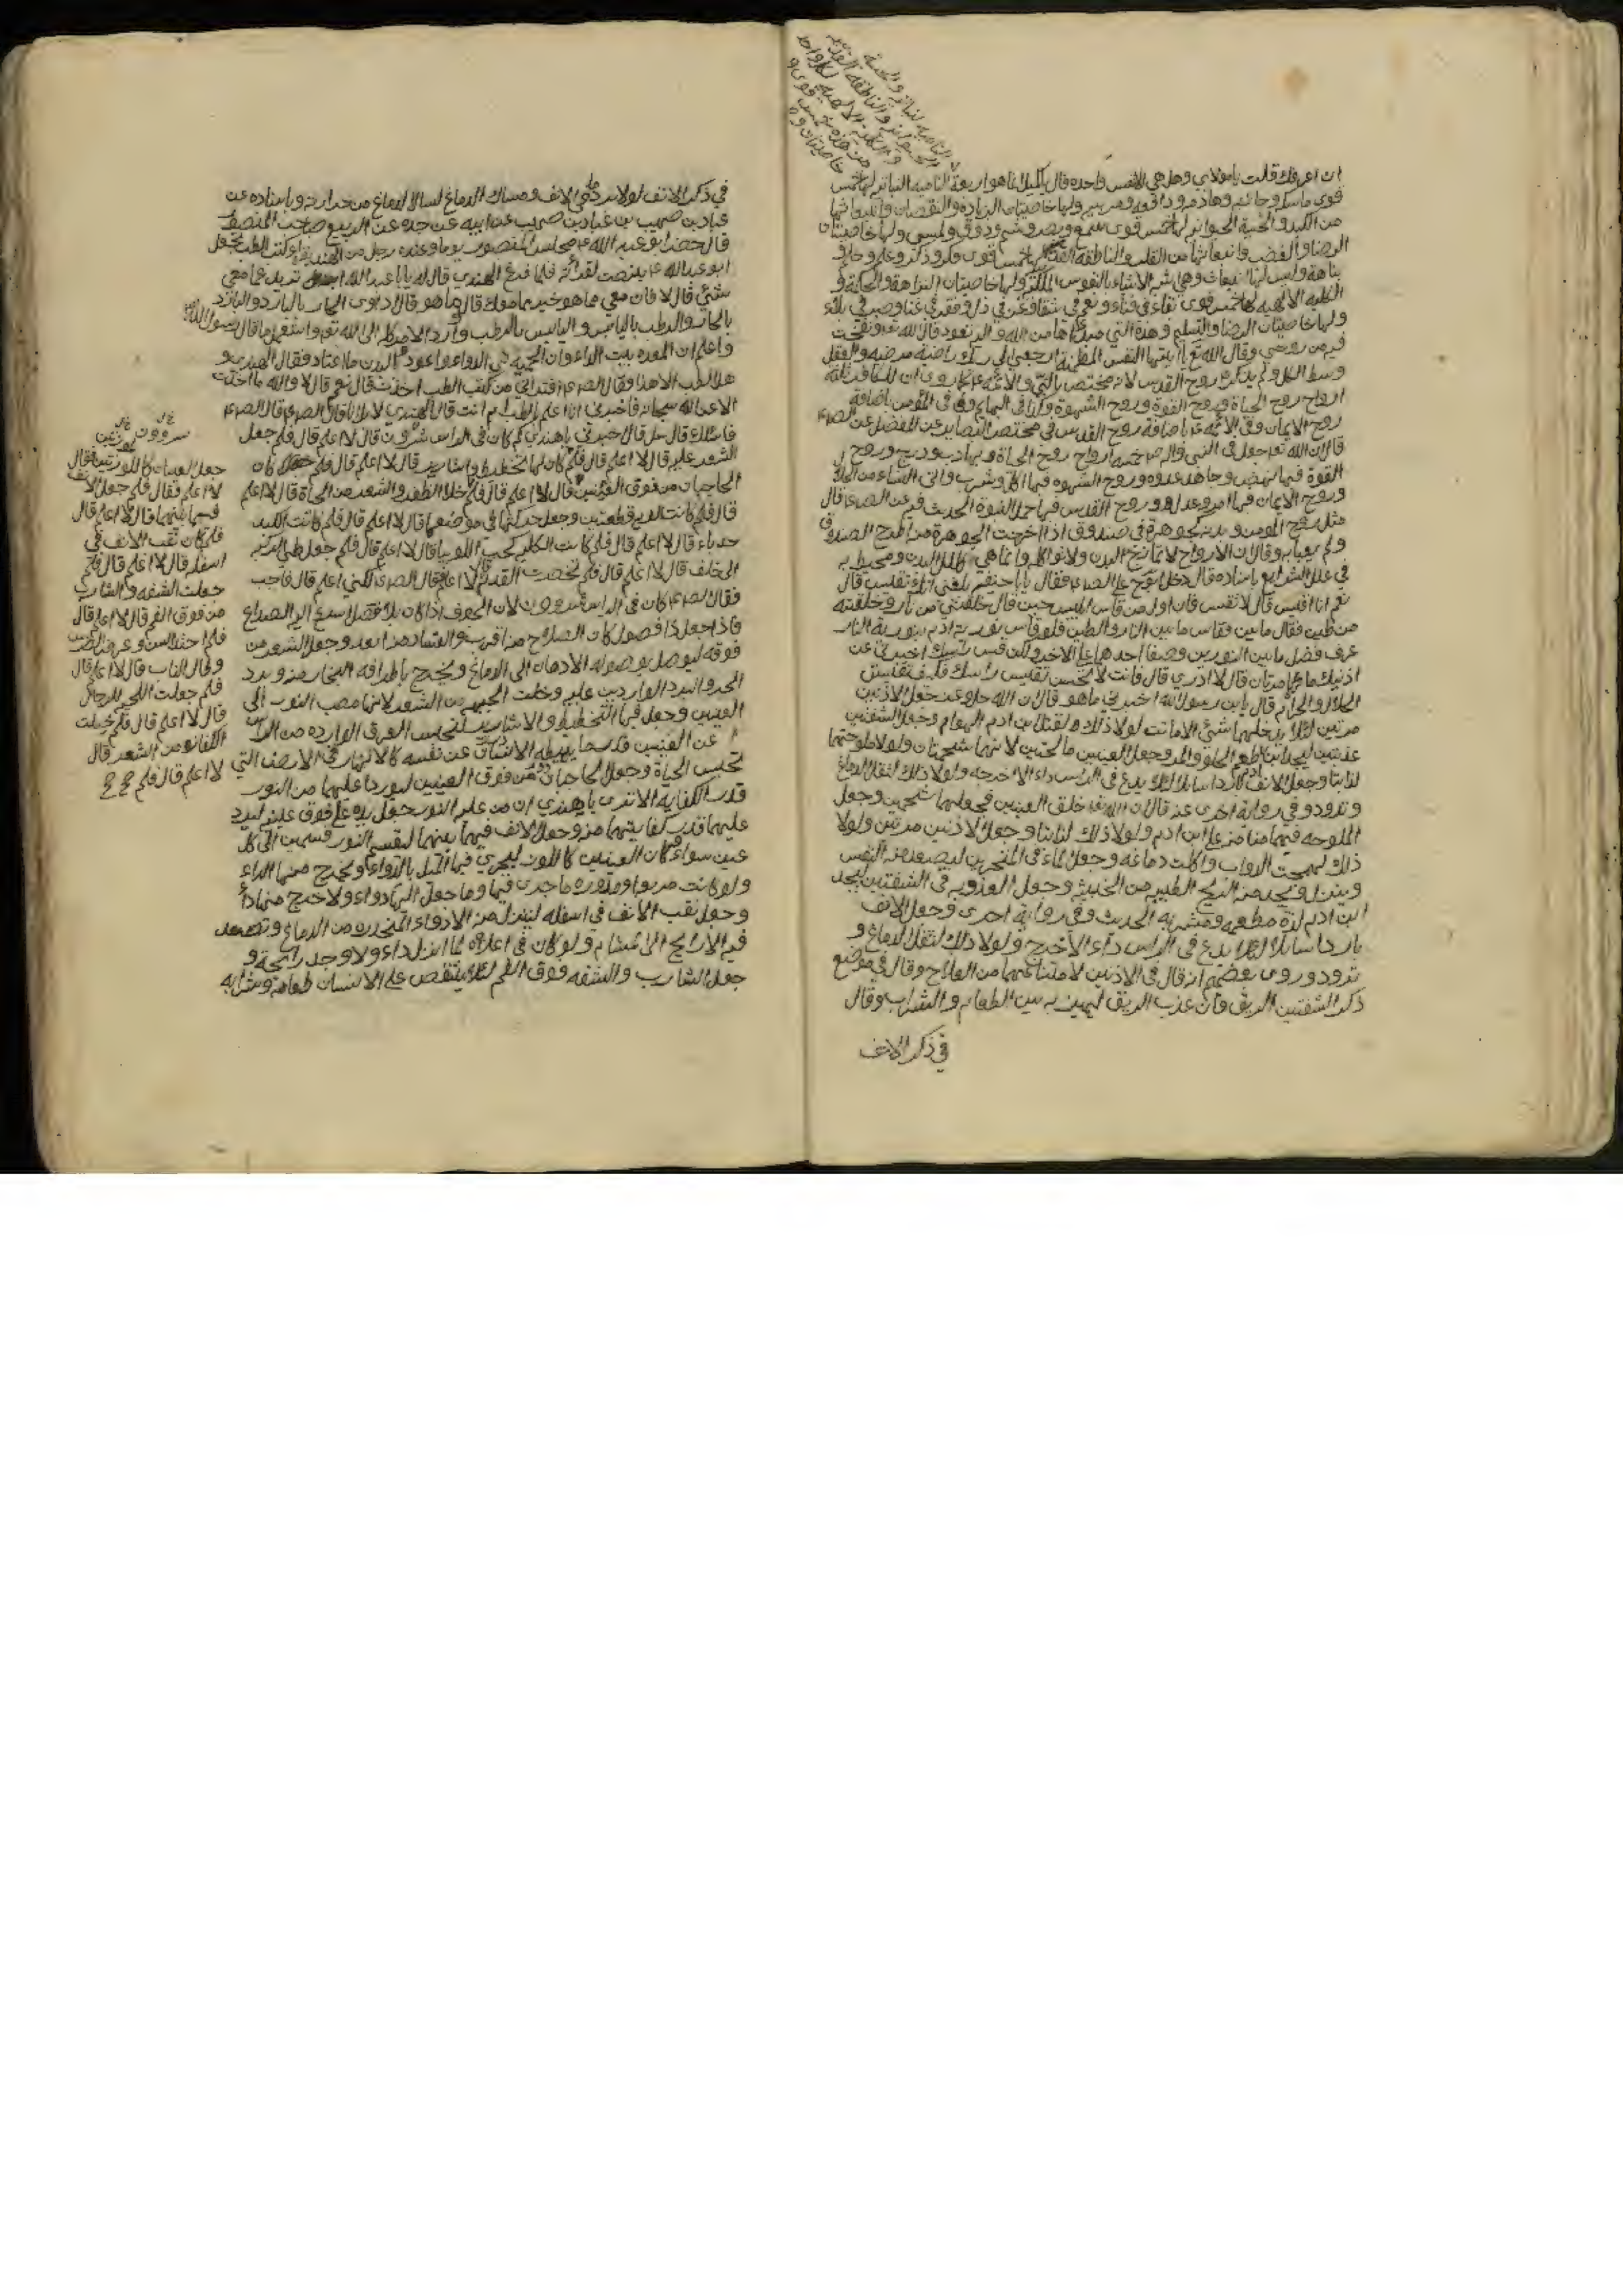 ان اعرفك قلت يا مولاي وهل هي الا نفس واحده قال يا كميل انما هو اربعة الناميه النباتيه لها خمس
قوى ماسكه وجاذبه وهاضمه ودافعه ومربيه ولها خاصيتان الزياده والنقصان وانبعاثها
من الكبد والحسية الحيوانيه لها خمس قوى سمع وبصر وشم وذوق ولمس ولها خاصيتان
الرضا والغضب وانبعاثها من القلب والناطقه القدسيه لها خمس قوى فكر وذكر وعلم وحلم و
نباهة وليس لها انبعاث وهي اشبه الاشياء بالنفوس الملكيه ولها خاصيتان النزاهة والحكمة و
الكليه الالهيه لها خمس قوى بقاء في فناء ونعيم في شقا وعز في ذل وفقر في غنا وصبر في بلاء
ولها خاصيتان الرضا والتسليم وهذه التي مبداها من الله واليه تعود قال الله تع ونفخت
فيه من روحي وقال الله تع يا ايتها النفس المطمئنة ارجعي الى ربك راضية مرضيه والعقل
وسط الكل ولم يذكر روح القدس لانه مختص بالنبي والائمه
ارواح روح الحياة وروح القوة وروح الشهوة وكذا في البهايم وفي المؤمن باضافة
روح الايمان وفي الائمه باضافة روح القدس في مختصر البصاير عن المفضل عن الص
قال ان الله تع جعل في النبي خمسه ارواح روح الحياة وبها دب ودرج وروح
القوة فبها نهض وجاهد عدوه وروح الشهوه فبها اكل وشرب واتى النساء من الحلال
وروح الايمان فبها امر وعدل وروح القدس فبها حمل النبوة الحديث فيه عن الص قال
مثل روح المومن وبدنه كجوهرة في صندوق اذا اخرجت الجوهرة منه طرح الصندوق
ولم يعبا به وقال ان الارواح لا تمازج البدن ولا تواكله وانما هي كلل للبدن ومحيطه به
في علل الشرايع باسناده قال دخل على الص فقال يا ابا حنيفه بلغني انك تقيس قال
نعم انا اقيس قال لا تقس فان اول من قاس ابليس حين قال خلقتني من نار وخلقته
من طين فقاس ما بين النار والطين فلو قاس نورية ادم بنورية النار
عرف فضل ما بين النورين وصفا احدهما على الاخر ولكن قس لي راسك اخبرني عن
اذنيك ما لهما مرتان قال لا ادري قال فانت لا تحسن تقيس راسك فكيف تقيس
الحلال والحرام قال يابن رسول الله اخبرني ما هو قال ان الله جل وعز جعل الاذنين
مرتين لئلا يدخلهما شئ الا مات لولا ذلك لقتل ابن ادم الهوام وجعل الشفتين
عذبتين ليجد ابن ادم طعم الحلو والمر وجعل العينين مالحتين لانهما شحمتان ولولا ملوحتهما
لذابتا وجعل الانف باردا سايلا لئلا يدع في الراس داء الا اخرجه ولولا ذلك لثقل الدماغ
وتدود وفي رواية اخرى عنه قال ان الله تع خلق العينين فجعلهما شحمتين وجعل
الملوحه فيهما منا منه على ابن ادم ولولا ذلك لذابتا وجعل الاذنين مرتين ولولا
ذلك لهجمت الدواب واكلت دماغه وجعل الماء في المنخرين ليصعد منه النفس
وينزل ويجد منه الريح الطيبه من الخبيثه وجعل العذوبه في الشفتين ليجد
ابن ادم لذة مطعمه ومشربه الحديث وفي رواية اخرى وجعل الانف
باردا سائلا لئلا يدع في الراس داء الا اخرجه ولولا ذلك لثقل الدماغ و
تدود وروى بعضهم انه قال في الاذنين لامتناعهما من العلاج وقال في موضع
ذكر الشفتين الريق وان عذب الريق ليميز به بين الطعام والشراب وقال
في ذكر الانف
في ذكر الانف لولا برد ما في الانف وامساك الدماغ لسال الدماغ من حرارته وباسناده عن
عباد بن صهيب عن ابيه عن جده عن الربيع صاحب المنصور
قال حضر ابو عبد الله مجلس المنصور يوما وعنده رجل من الهند يقرء كتب الطب فجعل
ابو عبد الله ينصت لقرائته فلما فرغ الهندي قال له يا ابا عبد الله تريد مما معي
شئي قال لا فان معي ما هو خير مما معك قال وما هو قال اداوى الحار بالبارد والبارد
بالحار والرطب باليابس واليابس بالرطب وارد الامر كله الى الله تع واستعمل ما قال رسول الله
واعلم ان المعده بيت الداء وان الحميه هي الدواء واعود البدن ما اعتاد فقال الهندي و
هل الطب الا هذا فقال الص افتراني من كتب الطب اخذت قال نعم قال لا والله ما اخذت
الا عن الله سبحانه فاخبرني انا اعلم بالطب ام انت قال الهندي لا بل انا قال الص
فاسئلك قال سل قال اخبرني يا هندي لم كان في الراس شئون قال لا اعلم قال فلم جعل
الشعر عليه قال لا اعلم قال فلم كان لها تخطيط واسارير قال لا اعلم قال فلم كان
الحاجبان من فوق العينين قال لا اعلم قال فلم خلا الظفر والشعر من الحياة قال لا اعلم
قال فلم كانت الريه قطعتين وجعل حركتها في موضعها قال لا اعلم قال فلم كانت الكبد
حدباء قال لا اعلم قال فلم كانت الكليه كحب اللوبيا قال لا اعلم قال فلم جعل طي الركبه
الى خلف قال لا اعلم قال فلم تخصرت القدم قال لا اعلم قال الص لكني اعلم قال فاجب
فقال الص كان في الراس شئون لان المجوف اذا كان بلا فصل اسرع اليه الصداع
فاذا جعل ذا فصول كان الصداع منه ابعد وجعل الشعر من
فوقه ليوصل بوصوله الادهان الى الدماغ ويخرج باطرافه البخار منه ويرد
الحر والبرد الواردين عليه وخلت الجبهه من الشعر لانها مصب النور الى
العينين وجعل فيها التخطيط والاسارير لتحبس العرق الوارده من الراس
عن العينين قدر ما يميطه الانسان عن نفسه كالانهار في الارض التي
تحبس المياه وجعل الحاجبان من فوق العينين ليوردا عليهما من النور
قدر الكفايه الا ترى يا هندي ان من غلبه النور جعل يده على فوق عينيه ليرد
عليهما قدر كفايتهما منه وجعل الانف فيما بينهما ليقسم النور قسمين الى كل
عين سواء وكان العينين كاللوزه ليجري فيها الميل بالدواء ويخرج منها الداء
ولو كانت مربعه او مدوره ما جرى فيها وما وصل اليها دواء ولا خرج منها داء
وجعل ثقب الانف في اسفله لينزل منه الادواء المتحدره من الدماغ وتصعد
فيه الارايح الى المشام ولو كان في اعلاه لما انزل داء ولا وجد رائحة و
جعل الشارب والشفه فوق الفم لئلا يتنغص على الانسان طعامه وشرابه
جعل العينان كاللوزتين فقال
لا اعلم فقال فلم جعل الانف
فيما بينهما قال لا اعلم قال
فلم كان ثقب الانف في
اسفله قال لا اعلم قال فلم
جعلت الشفه والشارب
من فوق الفم قال لا اعلم قال
فلم احتد السن وعرض الضرس
وطال الناب قال لا اعلم قال
فلم جعلت اللحيه للرجال
قال لا اعلم قال فلم خلت
الكفان من الشعر قال
لا اعلم قال فلم